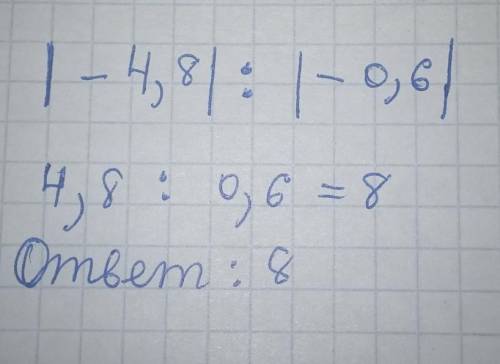 |-4,8| : |-0,6|
4,8 : 0,6 = 8
Ответ: 8